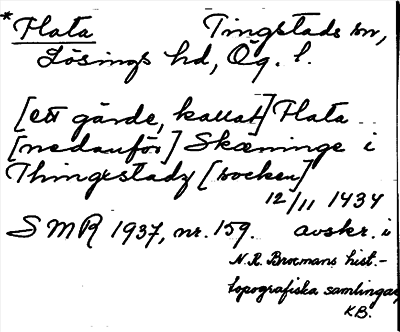 * Flata Tingstads sn,
Lösings hd, Ög. l.
[ett gärde, kallat] Flata
[nedanför] Skæninge i
Thingestadz [socken]
12/11 1434
SMR 1937, nr. 159. avskr. i
N.R. Brocmans hist.-
topografiska samlingar,
KB.